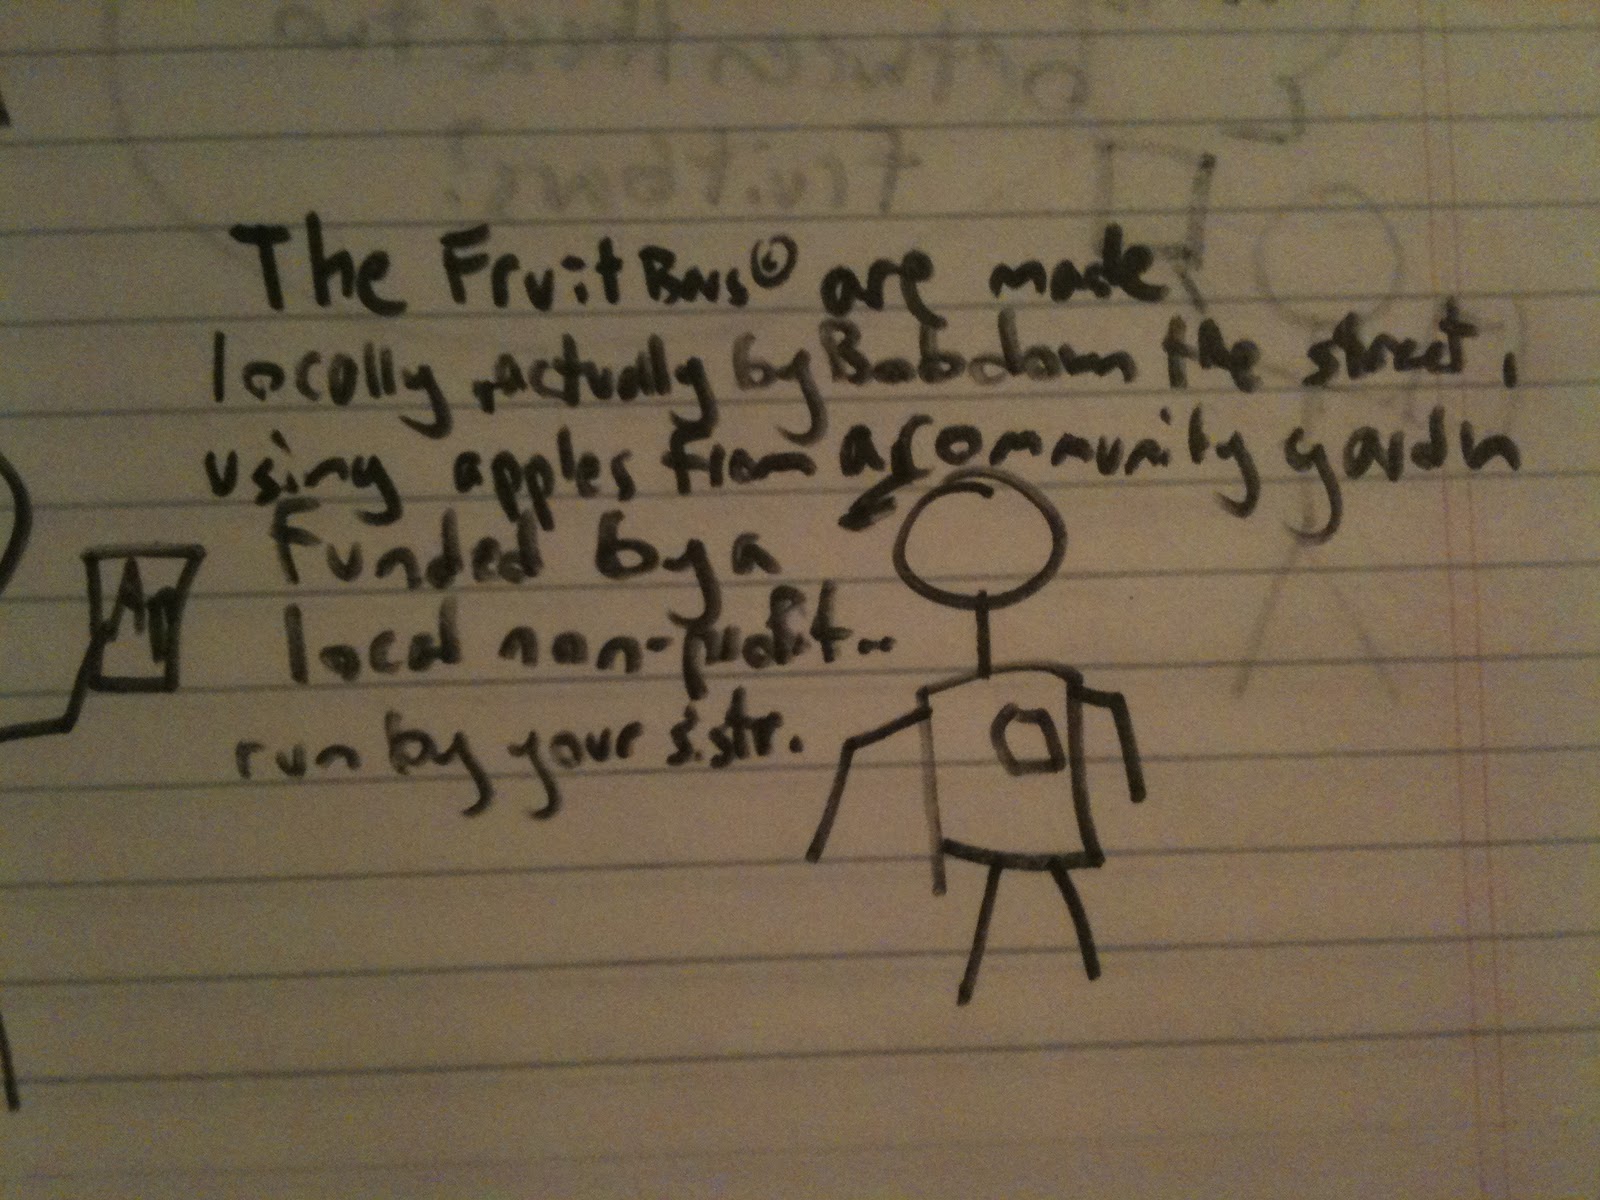 between these two
Fruitbars?
The FruitBars© are made
locally, actually by Bob down the street,
using apples from a community gardn
Funded by a
local non-profit..
run by your sistr.